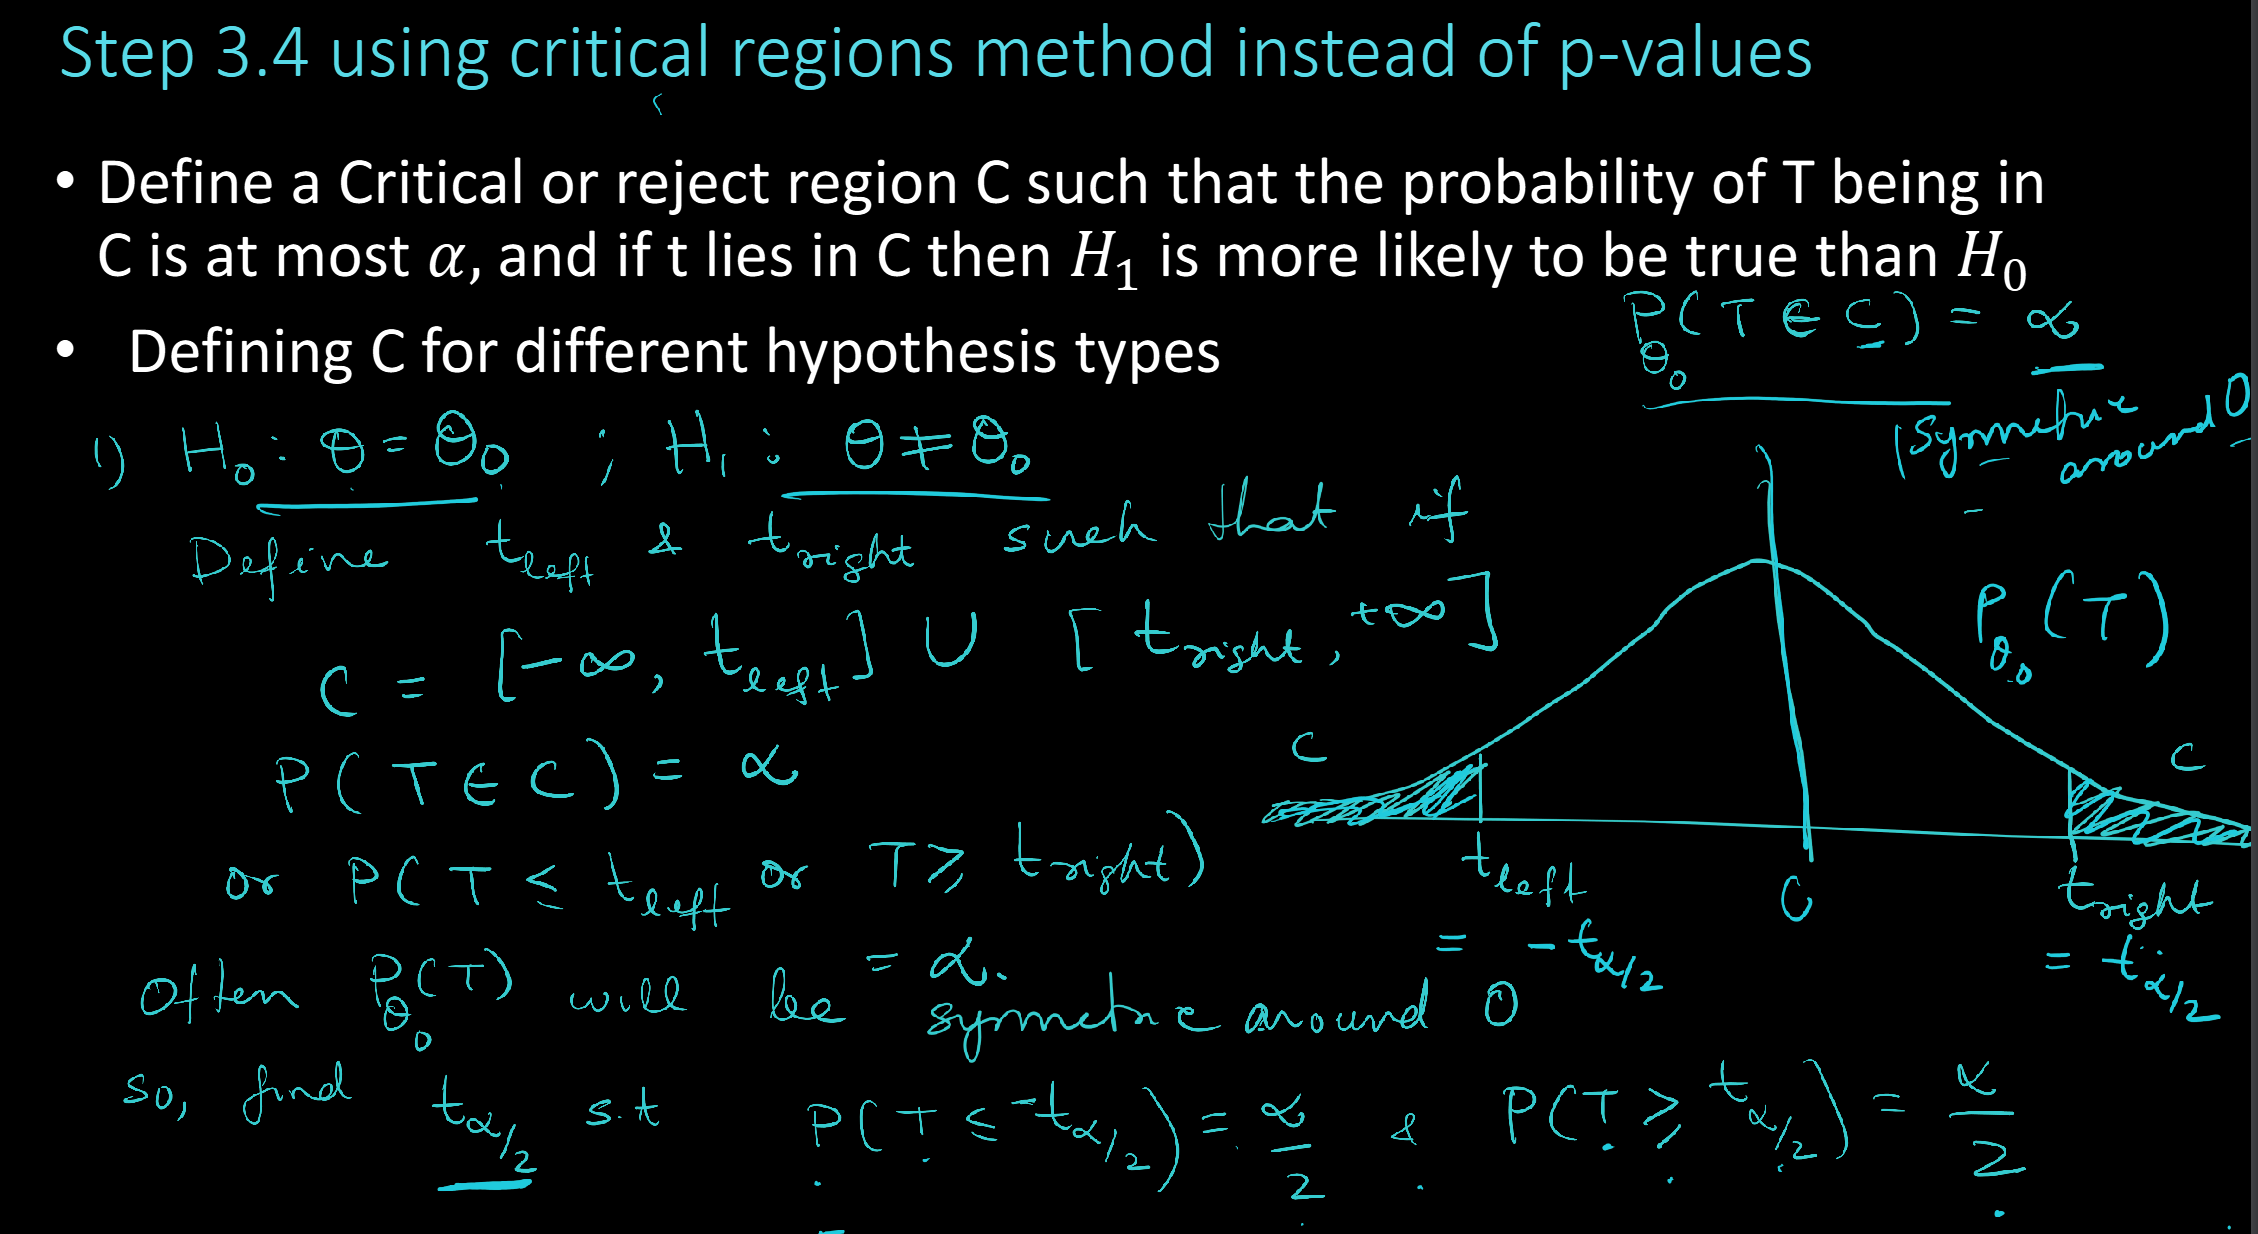 Step 3.4 using critical regions method instead of p-values
• Define a Critical or reject region C such that the probability of T being in
C is at most α, and if t lies in C then H₁ is more likely to be true than H₀
P_θ₀(T ∈ C) = α
• Defining C for different hypothesis types
(symmetric
around 0
1) H₀ : θ = θ₀ ; H₁ : θ ≠ θ₀
Define t_left & t_right such that if
C = [-∞, t_left] ∪ [t_right, +∞]
P_θ₀(T)
P(T ∈ C) = α
C
C
or P(T ≤ t_left or T ≥ t_right)
= α.
t_left
= -t_α/2
0
t_right
= t_α/2
Often P_θ₀(T) will be symmetric around 0
so, find t_α/2 s.t P(T ≤ -t_α/2) = α/2 & P(T ≥ t_α/2) = α/2